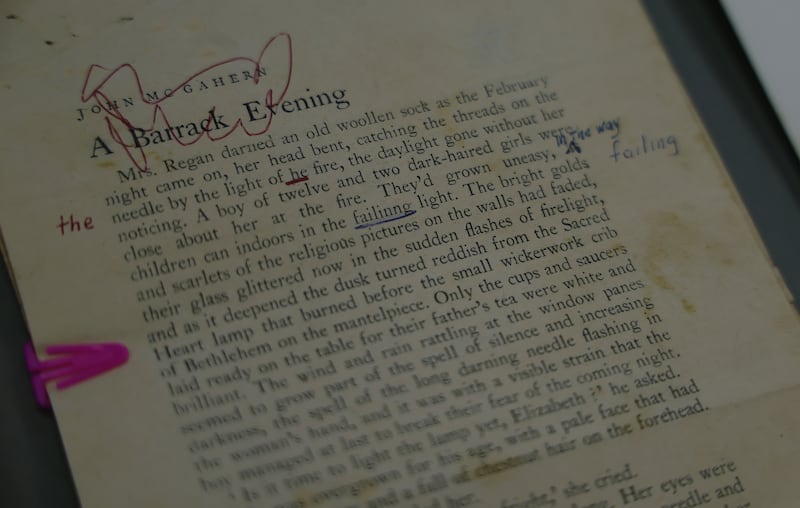 JOHN MC GAHERN
A Barrack Evening
Mrs. Regan darned an old woollen sock as the February
night came on, her head bent, catching the threads on the
needle by the light of he fire, the daylight gone without her
noticing. A boy of twelve and two dark-haired girls were
close about her at the fire. They'd grown uneasy, in the way
children can indoors in the failinng light. The bright golds
and scarlets of the religious pictures on the walls had faded,
their glass glittered now in the sudden flashes of firelight,
and as it deepened the dusk turned reddish from the Sacred
Heart lamp that burned before the small wickerwork crib
of Bethlehem on the mantelpiece. Only the cups and saucers
laid ready on the table for their father's tea were white and
brilliant. The wind and rain rattling at the window panes
seemed to grow part of the spell of silence and increasing
darkness, the spell of the long darning needle flashing in
the woman's hand, and it was with a visible strain that the
boy managed at last to break their fear of the coming night.
' Is it time to light the lamp yet, Elizabeth ?' he asked.
overgrown for his age, with a pale face that had
and a fall of chestnut hair on the forehead.
her.
she cried.
Her eyes were
needle and
the
failing